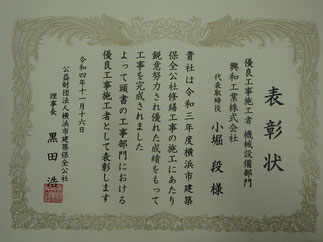 表彰状
優良工事施工者 機械設備部門
興和工業株式会社
代表取締役 小堀 段 様
貴社は令和三年度横浜市建築
保全公社修繕工事の施工にあたり
鋭意努力され優れた成績をもって
工事を完成されました
よって頭書の工事部門における
優良工事施工者として表彰します
令和四年十一月十六日
公益財団法人横浜市建築保全公社
理事長 黒田 浩